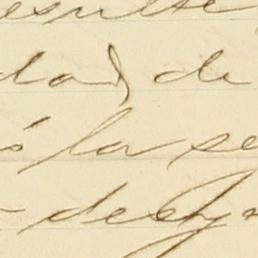 resulte
dad de
ó la se
- desy